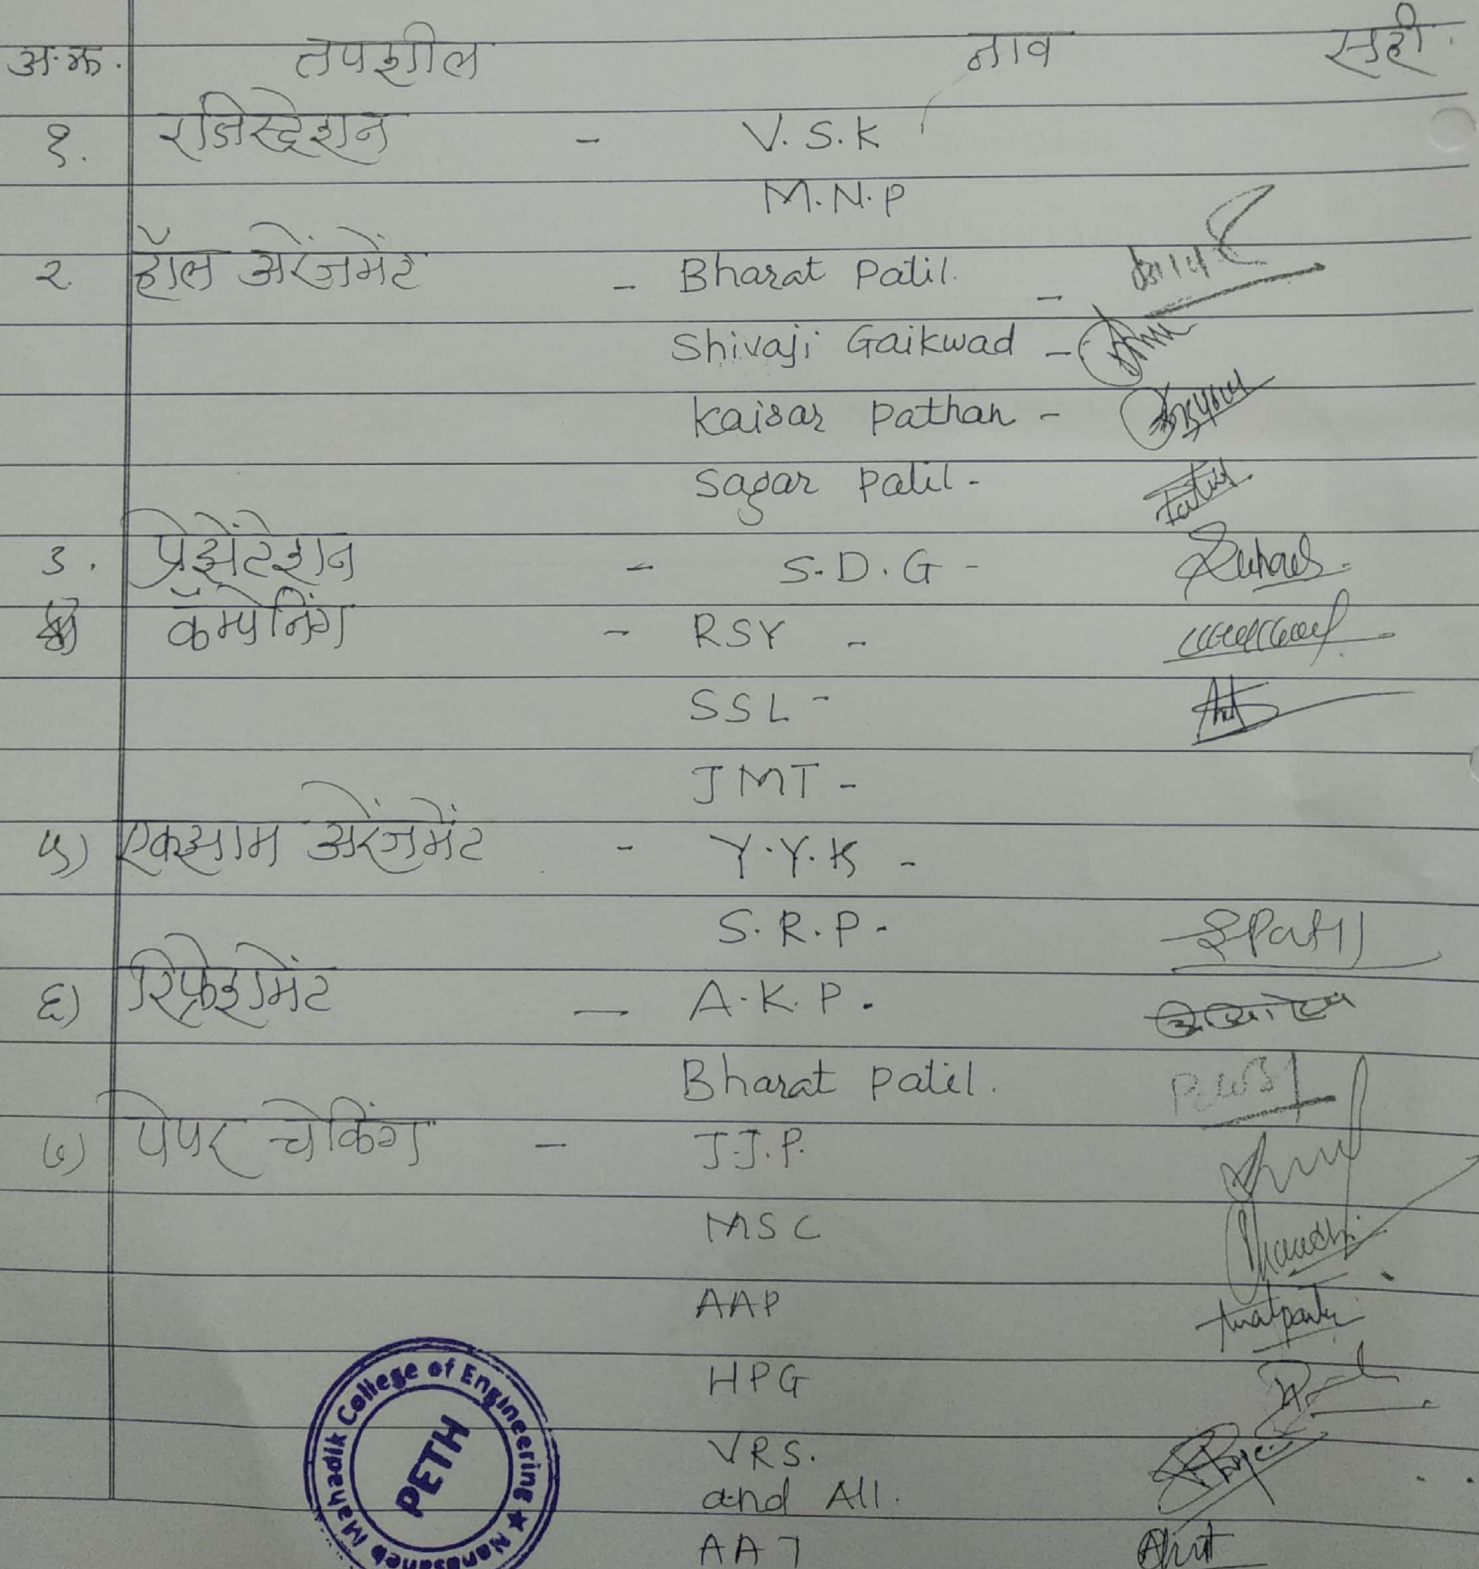 अ.क्र. तपशील नाव सही.
१. रजिस्ट्रेशन - V.S.K
M.N.P
२. हॉल अरेंजमेंट - Bharat Patil. -
Shivaji Gaikwad -
Kaisar Pathan -
Sagar Patil -
३. प्रेझेंटेशन - S.D.G - Suhas.
कॅम्पेनिंग - RSY -
SSL -
JMT -
५) एक्झाम अरेंजमेंट - Y.Y.K -
S.R.P. - SRPatil
६) रिफ्रेशमेंट - A.K.P.
Bharat Patil.
७) पेपर चेकिंग - J.J.P.
MSC
AAP
HPG
VRS.
and All.
AAJ
Nanasaheb Mahadik College of Engineering ★
PETH